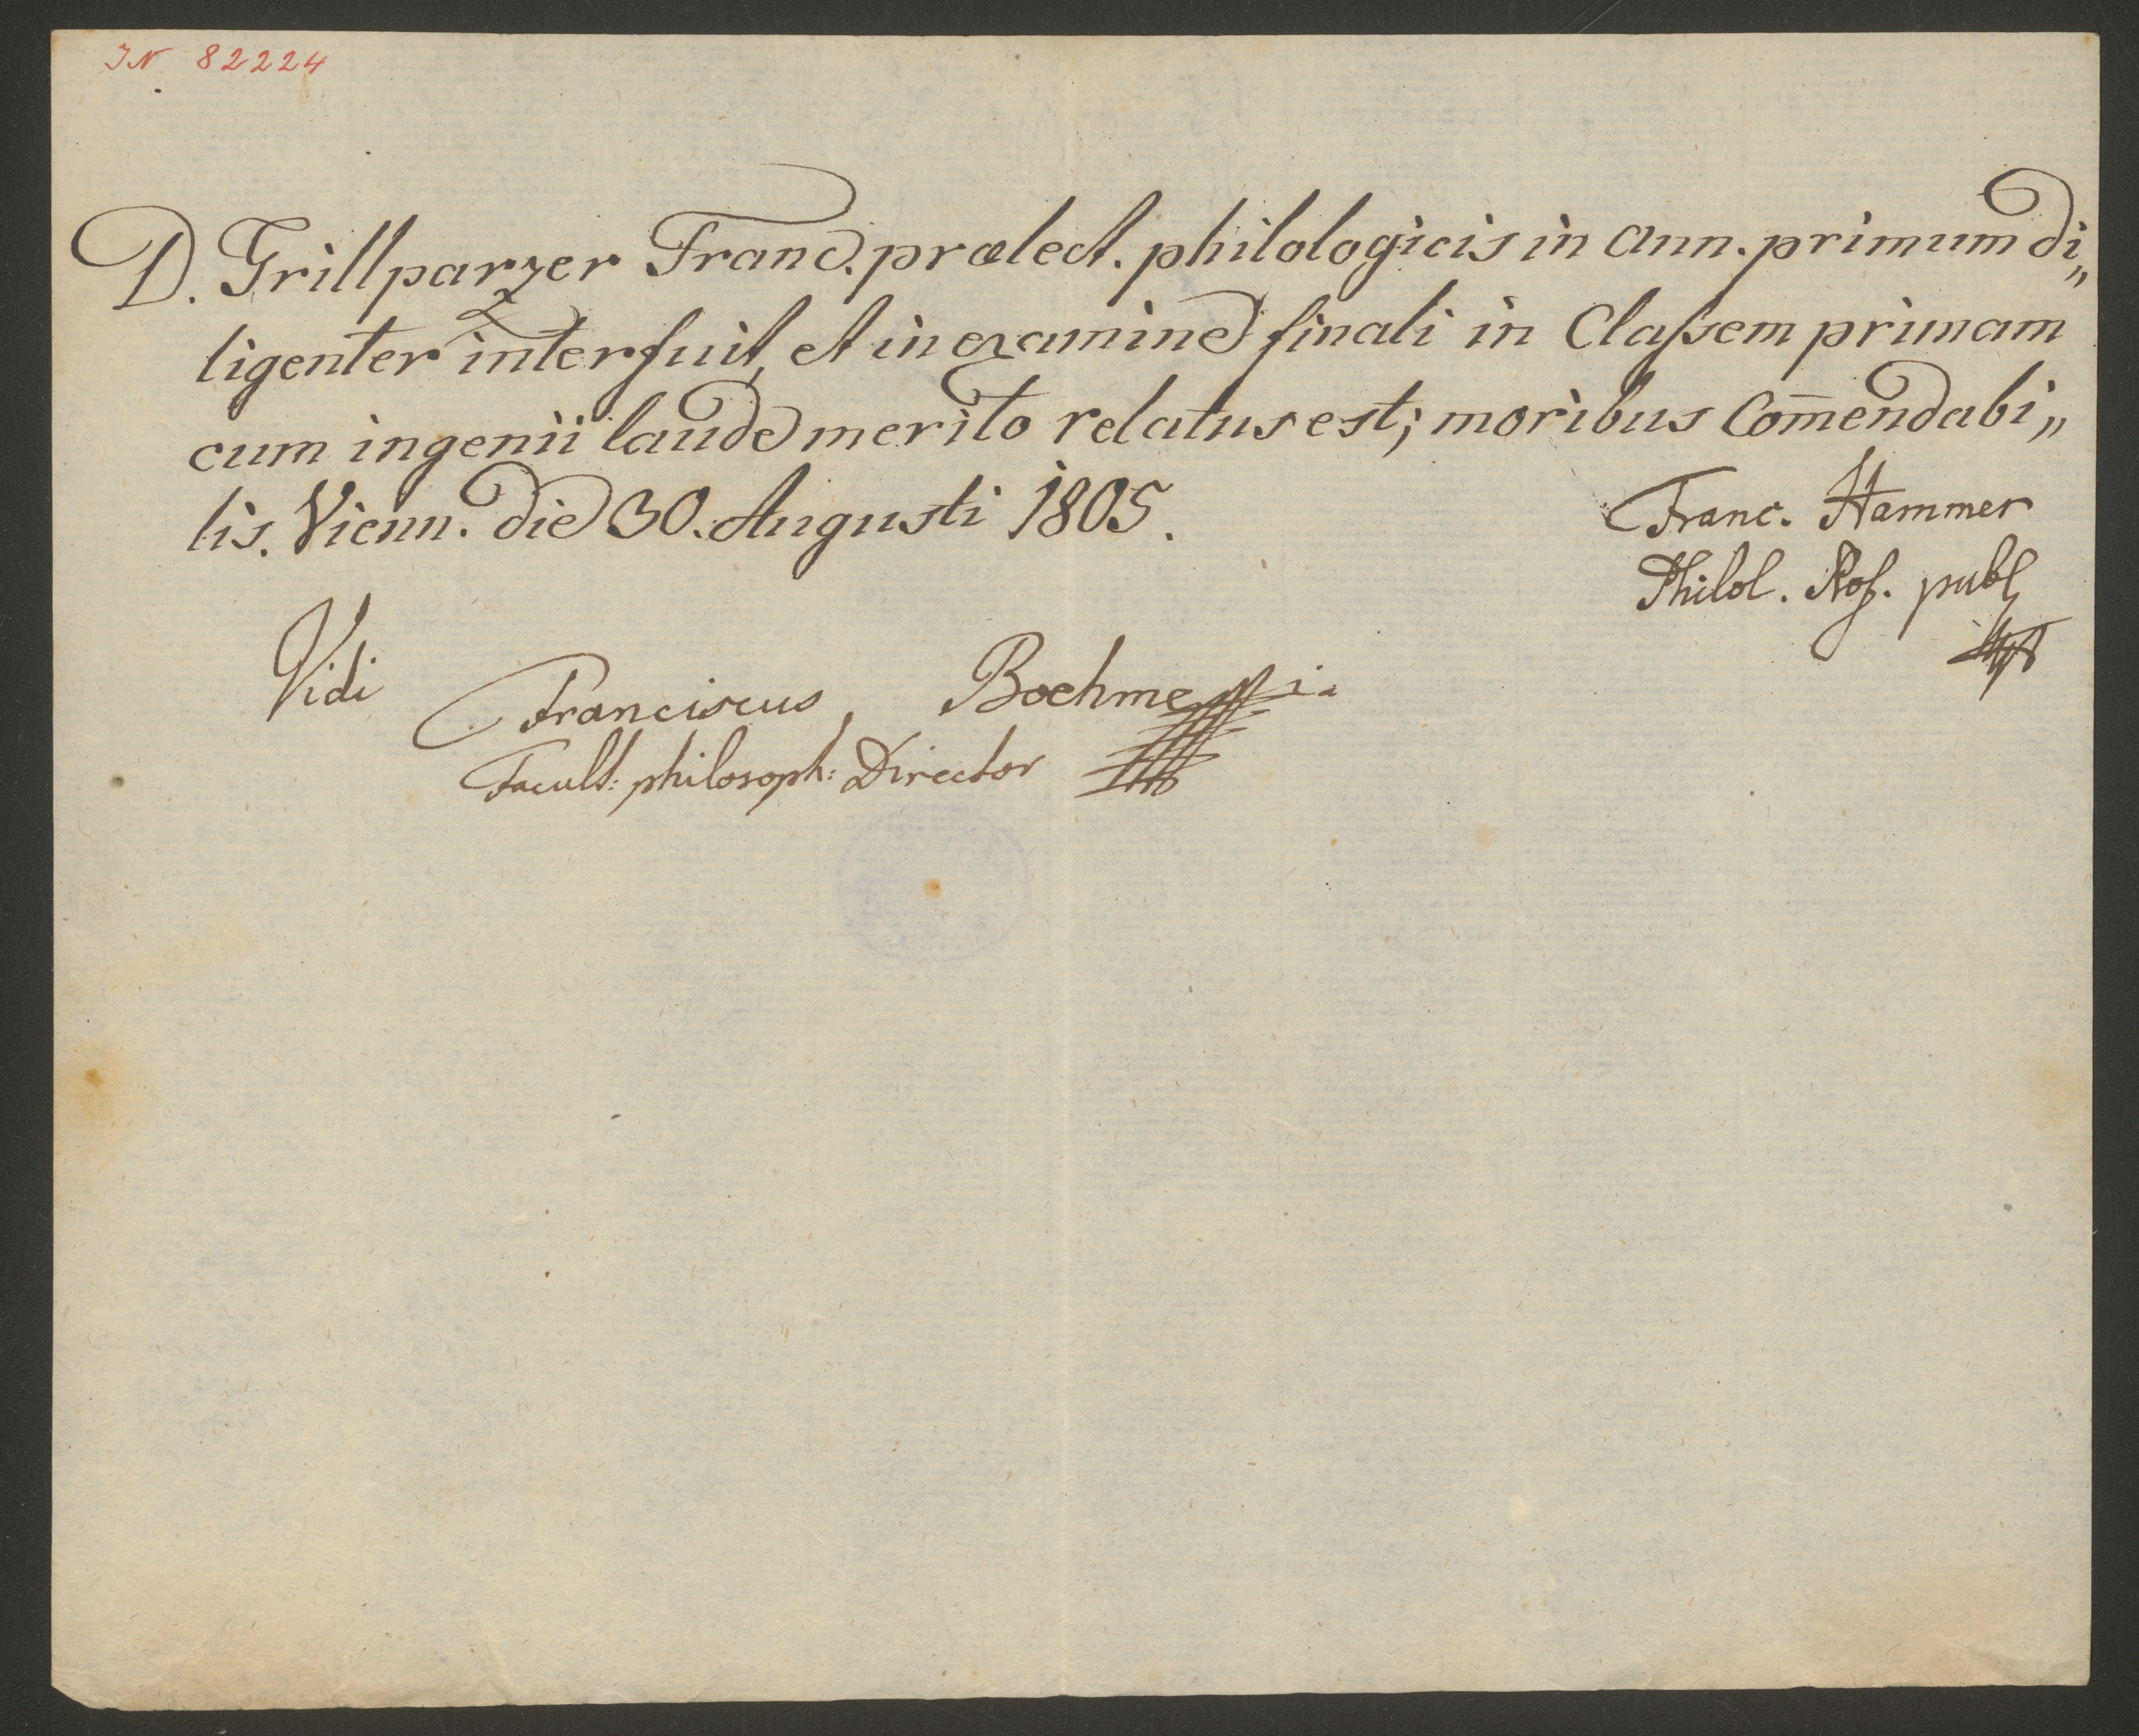 IN 82224
D. Grillparzer Franc. prælect. philologicis in Ann. primum di„
ligenter interfuit, et in examine finali in Claßem primam
cum ingenii laude merito relatus est; moribus Com̄endabi„
lis. Vienn. die 30. Augusti 1805.
Franc. Hammer
Philol. Prof. publ
Vidi Franciscus Boehme
Facult: philosoph: Director